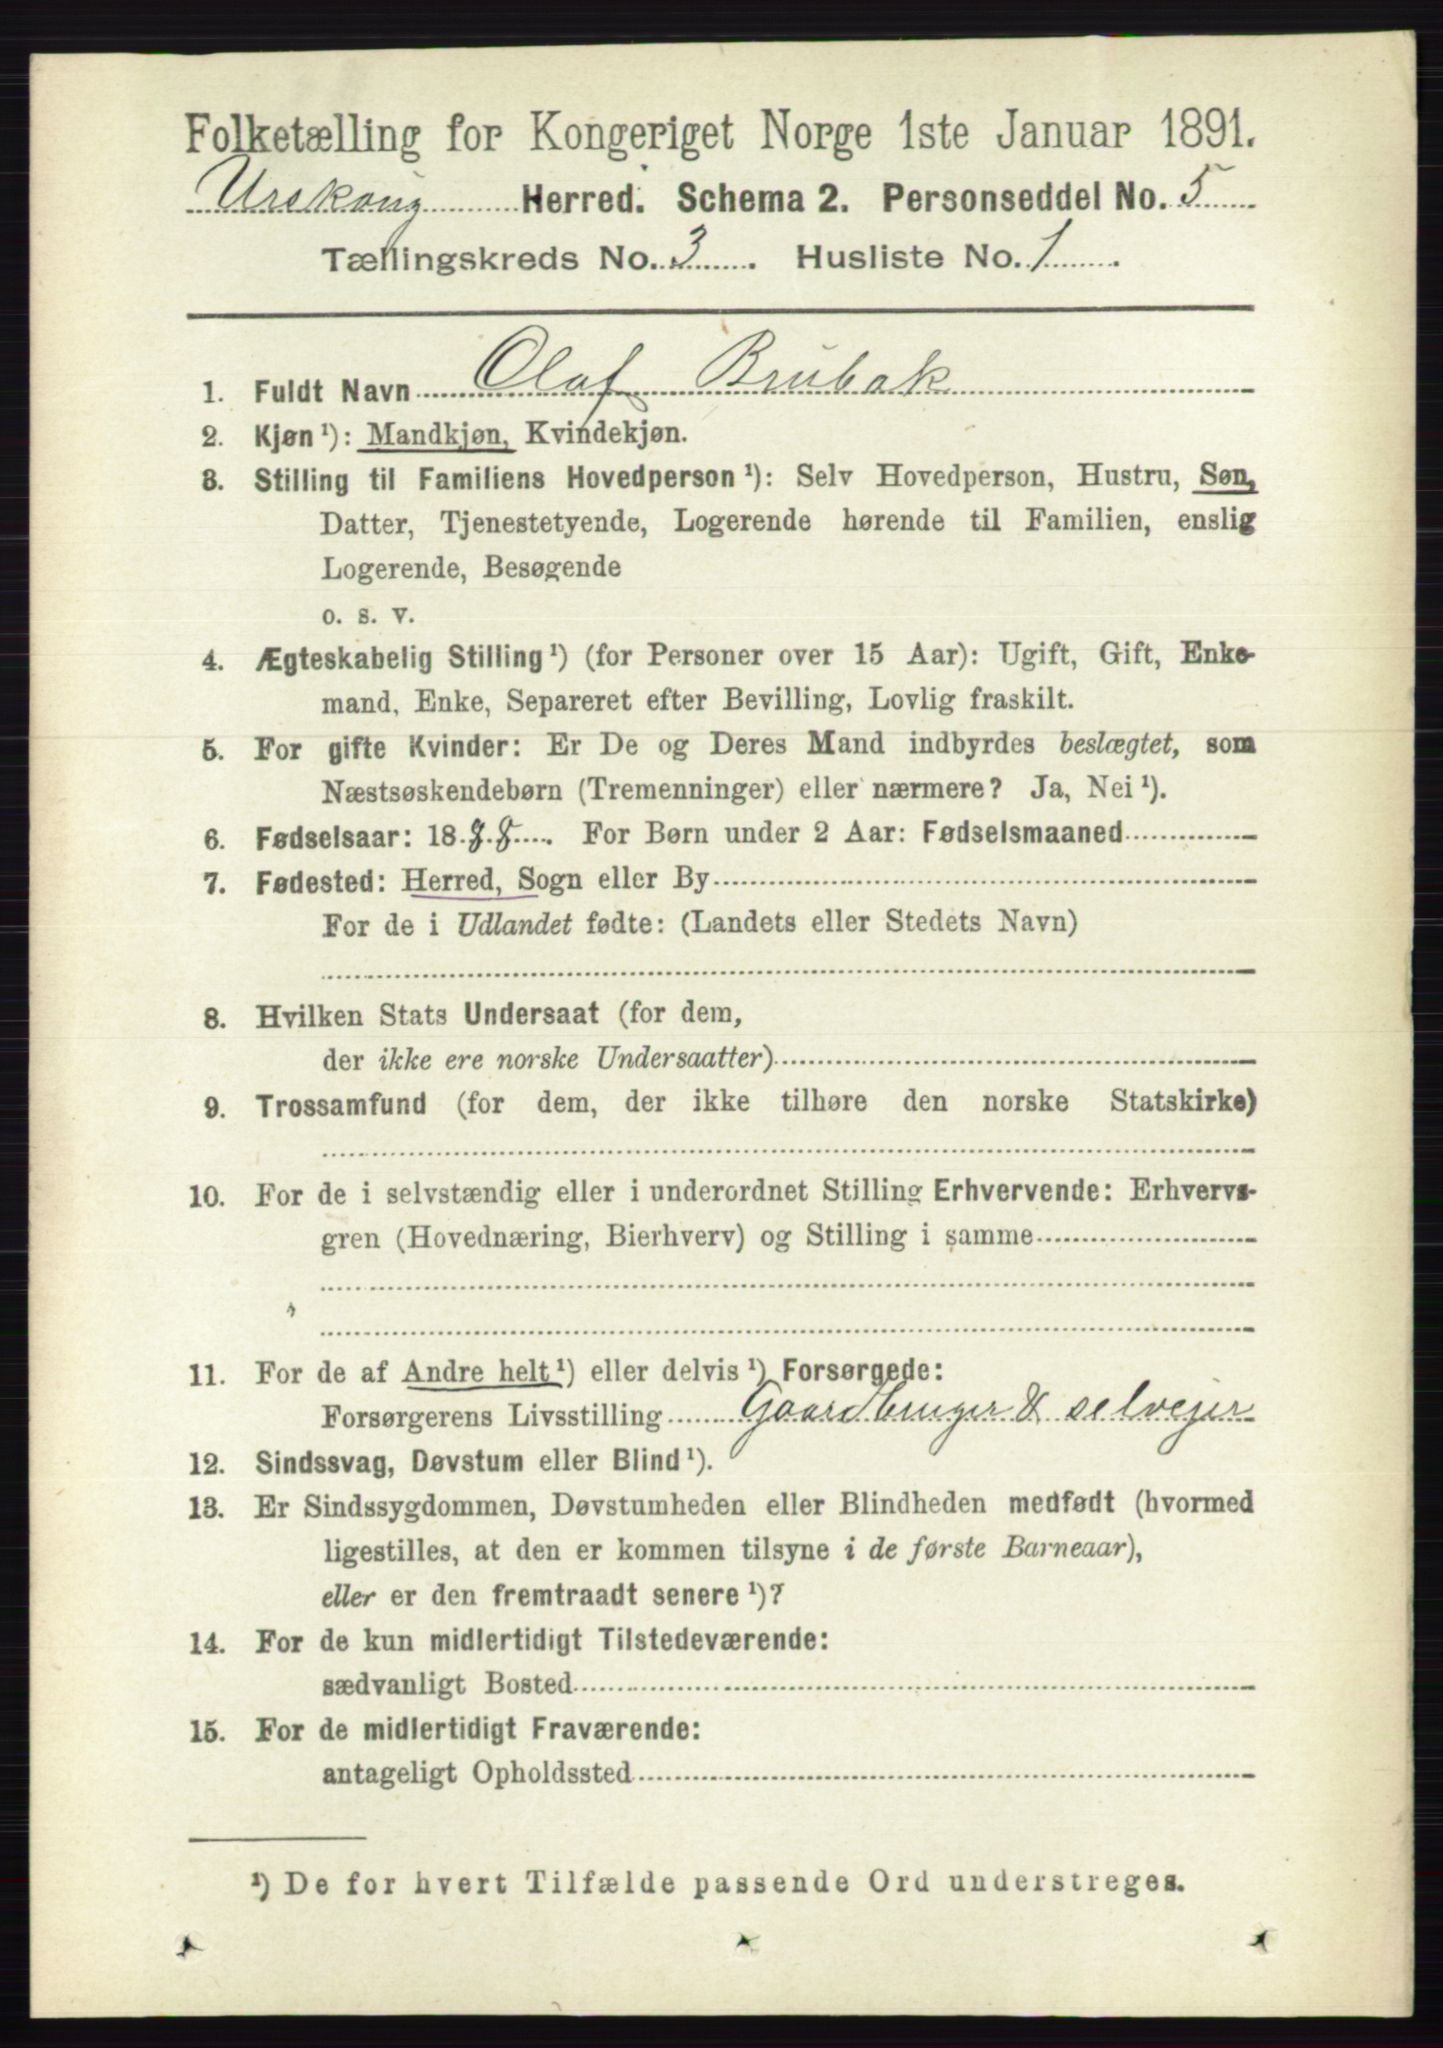 Folketælling for Kongeriget Norge 1ste Januar 1891.
Urskoug Herred. Schema 2. Personseddel No. 5
Tællingskreds No. 3. Husliste No. 1.
1. Fuldt Navn Olaf Brubak
2. Kjøn ¹): Mandkjøn, Kvindekjøn.
3. Stilling til Familiens Hovedperson ¹): Selv Hovedperson, Hustru, Søn,
Datter, Tjenestetyende, Logerende hørende til Familien, enslig
Logerende, Besøgende
o. s. v.
4. Ægteskabelig Stilling ¹) (for Personer over 15 Aar): Ugift, Gift, Enke-
mand, Enke, Separeret efter Bevilling, Lovlig fraskilt.
5. For gifte Kvinder: Er De og Deres Mand indbyrdes beslægtet, som
Næstsøskendebørn (Tremenninger) eller nærmere? Ja, Nei ¹).
6. Fødselsaar: 1888. For Børn under 2 Aar: Fødselsmaaned
7. Fødested: Herred, Sogn eller By
For de i Udlandet fødte: (Landets eller Stedets Navn)
8. Hvilken Stats Undersaat (for dem,
der ikke ere norske Undersaatter)
9. Trossamfund (for dem, der ikke tilhøre den norske Statskirke)
10. For de i selvstændig eller i underordnet Stilling Erhvervende: Erhvervs-
gren (Hovednæring, Bierhverv) og Stilling i samme
11. For de af Andre helt ¹) eller delvis ¹) Forsørgede:
Forsørgerens Livsstilling Gaardbruger & selvejer
12. Sindssvag, Døvstum eller Blind ¹).
13. Er Sindssygdommen, Døvstumheden eller Blindheden medfødt (hvormed
ligestilles, at den er kommen tilsyne i de første Barneaar),
eller er den fremtraadt senere ¹)?
14. For de kun midlertidigt Tilstedeværende:
sædvanligt Bosted
15. For de midlertidigt Fraværende:
antageligt Opholdssted
¹) De for hvert Tilfælde passende Ord understreges.